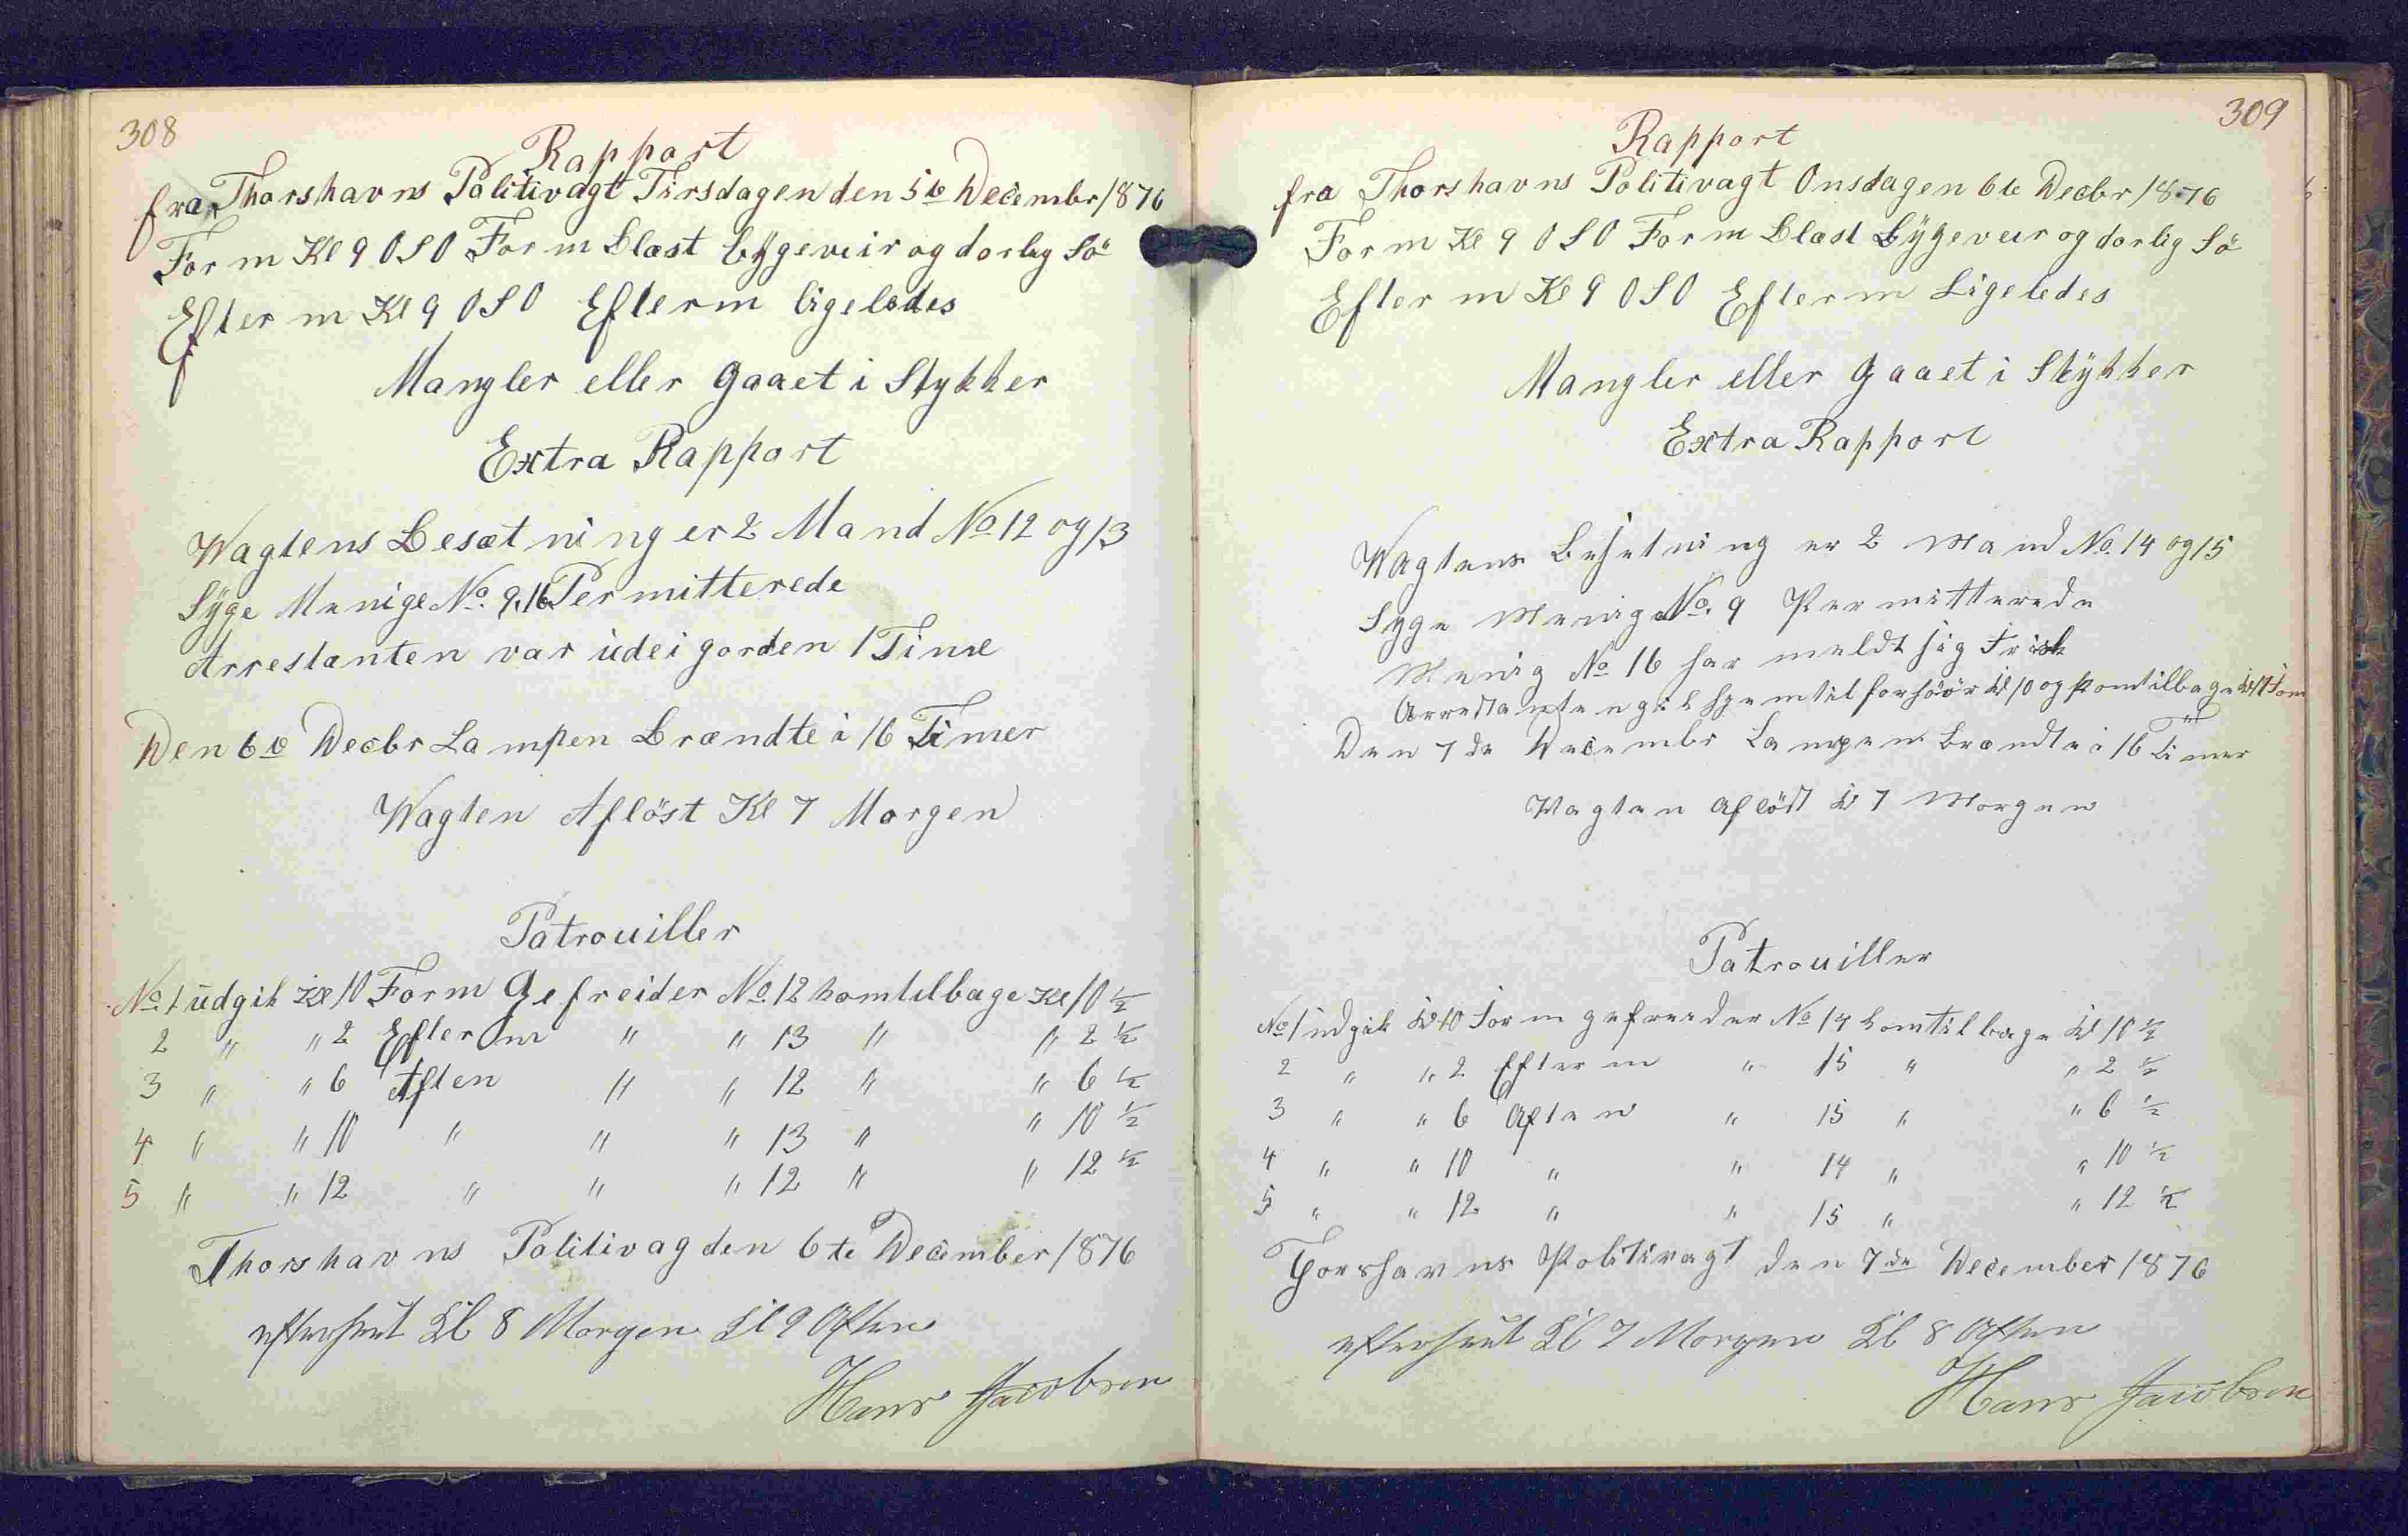 308
Rapport
fra Thorshavns Politivagt Tirsdagen den 5te Decembr 1876
Form Kl 9 OSO Form Blæst Bÿgeveir og dorlig Sö
Efterm Kl 9 OSO Efterm ligeledes
Mangler eller gaaet i Stykker
Extra Rapport
Wagtens Besætning er 2 Mand No 12 og 13
Sÿge Menige No. 9, 16 Permitterede
Arrestanten var ude i gorden 1 Time
Den 6te Decbr Lampen Brændte i 16 Timer
Wagten Aflöst Kl 7 Morgen
Patrouiller
No. 1 udgik Kl 10 Form Gefreider No. 12 komtilbage Kl 10 ½
2 " " 2 Efterm " " 13 " " 2 ½
3 " " 6 Aften " " 12 " " 6 ½
4 " " 10 " " " 13 " " 10 ½
5 " " 12 " " " 12 " " 12 ½
Thorshavns Politivag den 6te December 1876
efterseet Kl 8 Morgen Kl 9 Aften
Hans Jacobsen
309
Rapport
fra Thorshavns Politivagt Onsdagen 6te Decbr 1876
Form Kl 9 OSO Form Blæst Bÿgeveir og dorlig Sö
Efterm Kl 9 OSO Efterm Ligeledes
Mangler eller gaaet i Stÿkker
Extra Rapport
Wagtens Besetning er 2 Mand No. 14 og 15
Syge Menig No. 9 Permitterede
Menig No 16 har meldt sig Frisk
Arrestanten gik hjem til forhöör Kl 10 og komtilbage Kl 11 Form
Den 7de Decembr Lampen Brændte i 16 Timer
Wagten Aflöst Kl 7 Morgen
Patrouiller
No 1 udgik Kl 10 Form gefreider No 14 komtilbage Kl 10 ½
2 " " 2 Efterm " 15 " " 2 ½
3 " " 6 Aften " 15 " " 6 ½
4 " " 10 " " 14 " " 10 ½
5 " " 12 " " 15 " " 12 ½
Thorshavns Politivagt den 7de December 1876
efterseet Kl 7 Morgen Kl 8 Aften
Hans Jacobsen